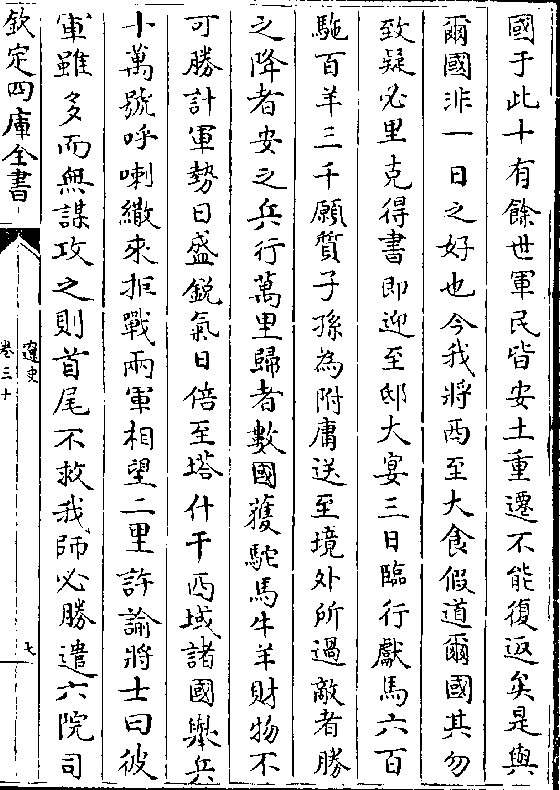 國于此十有餘世軍民皆安土重遷不能復返矣是與
爾國非一日之好也今我將西至大食假道爾國其勿
致疑必里克得書即迎至邸大宴三日臨行獻馬六百
駞百羊三千願質子孫為附庸送至境外所過敵者勝
之降者安之兵行萬里歸者數國獲駝馬牛羊財物不
可勝計軍勢日盛鋭氣日倍至塔什干西域諸國舉兵
十萬號呼喇繖來拒戰兩軍相望二里許諭將士曰彼
軍雖多而無謀攻之則首尾不救我師必勝遣六院司
欽定四庫全書
遼史
卷三十
七